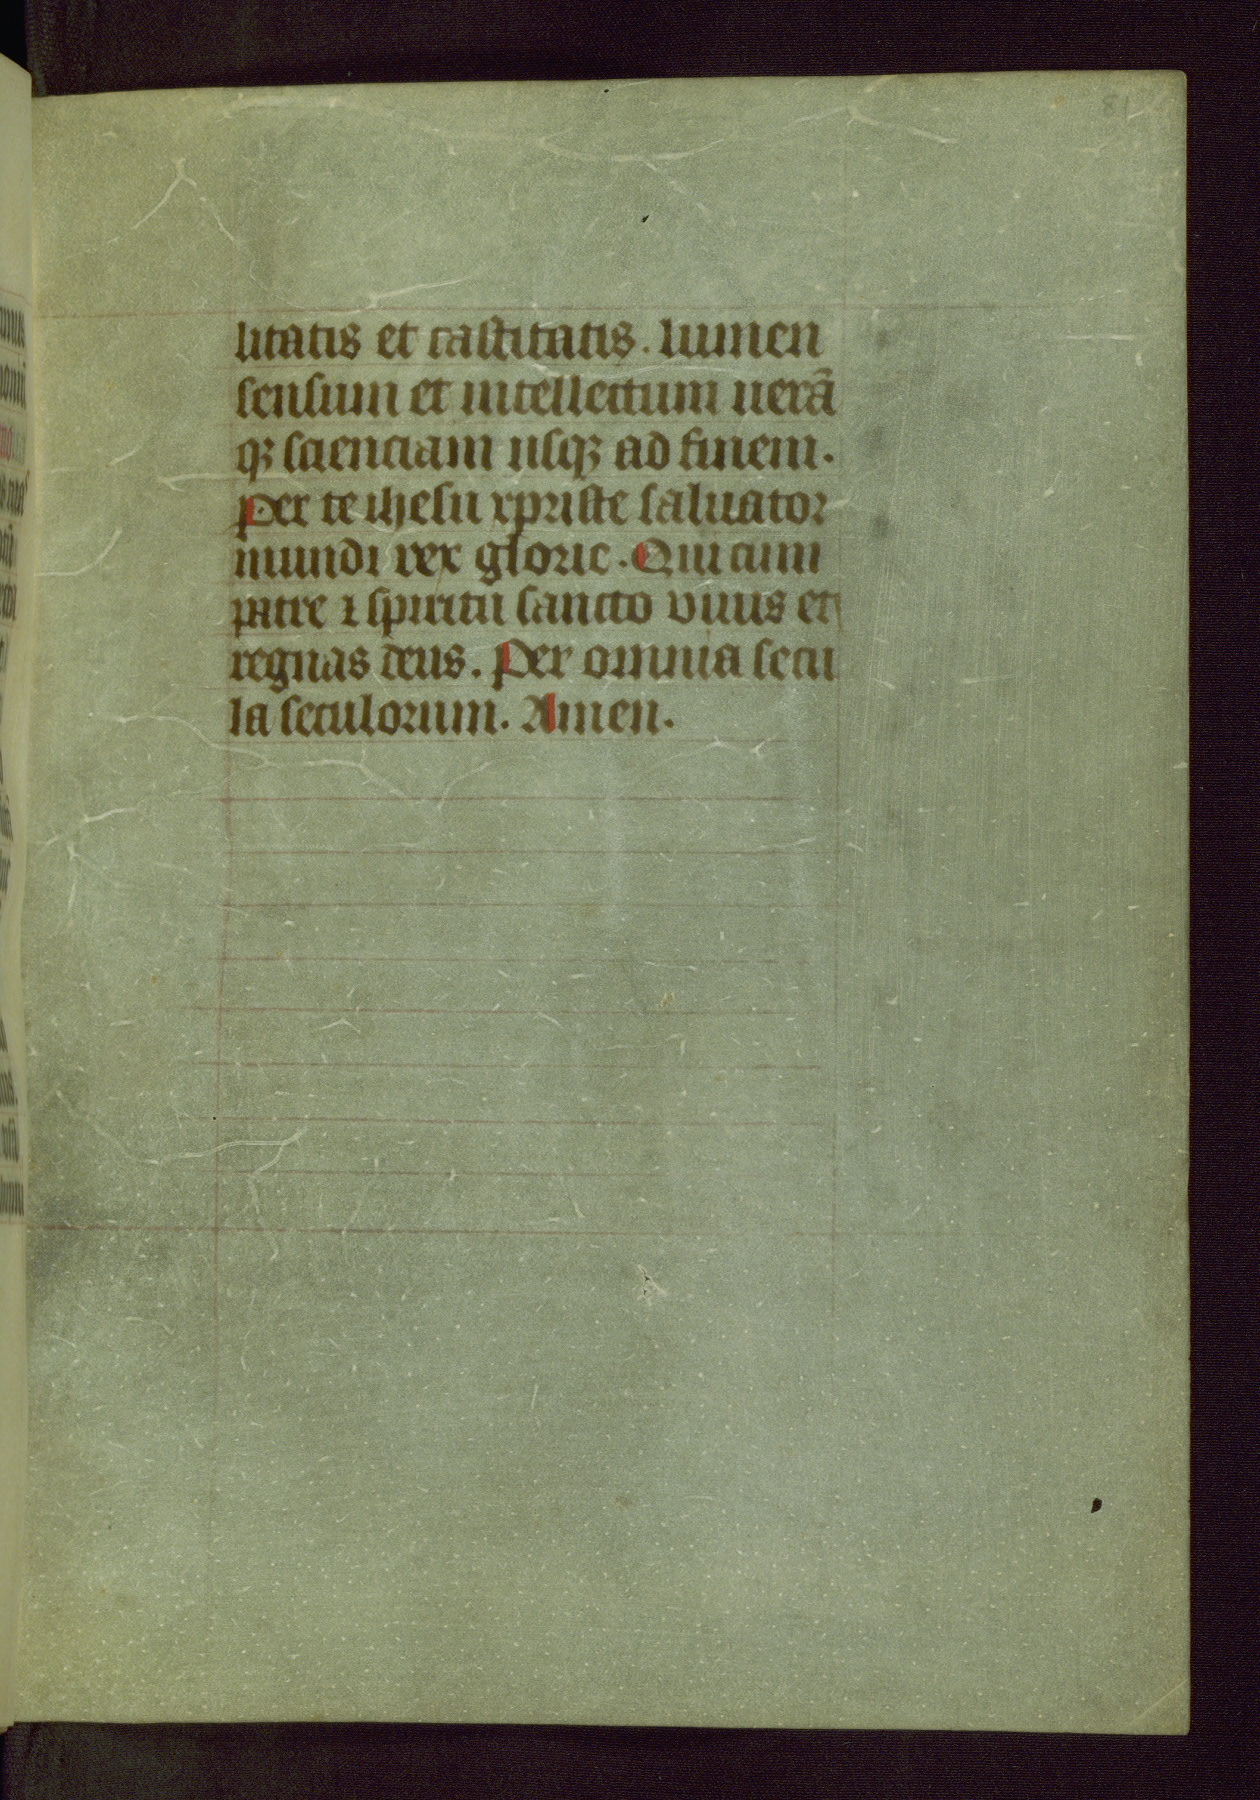 81
litatis et castitatis. lumen
sensum et intellectum uerā
qꝫ scienciam usqꝫ ad finem.
Per te ihesu xpriste saluator
mundi rex glorie. Qui cum
patre ⁊ spiritu sancto viuis et
regnas deus. Per omnia secu
la seculorum. Amen.